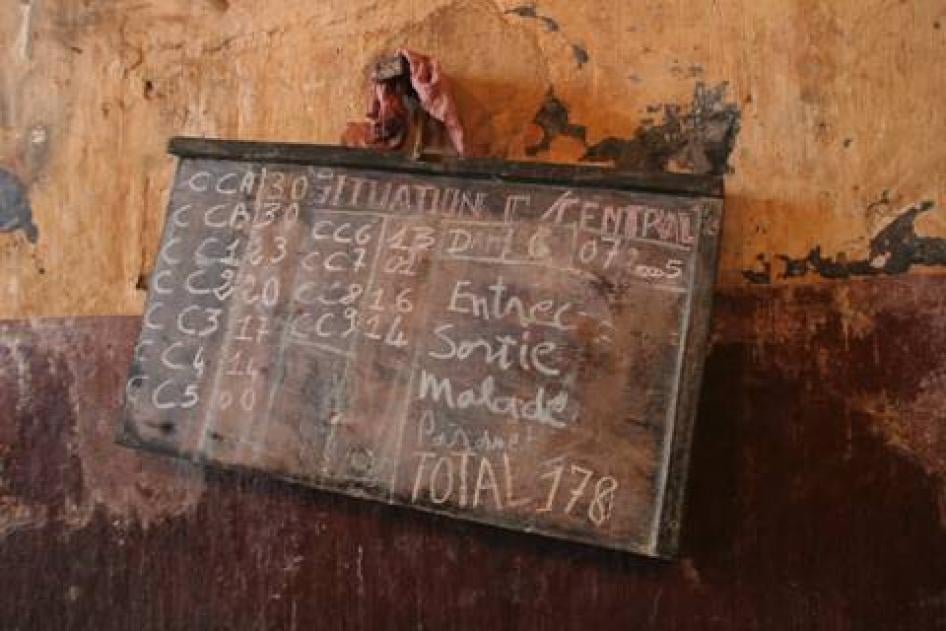 CCA 30 SITUATION CENTRAL
CCA 30
CC6 13
CC1 23 CC7 02 07
CC2 20 CC8 16 Entrec
CC3 17 CC9 14 Sortie
CC4 14 Malade
CC5 00
TOTAL 178